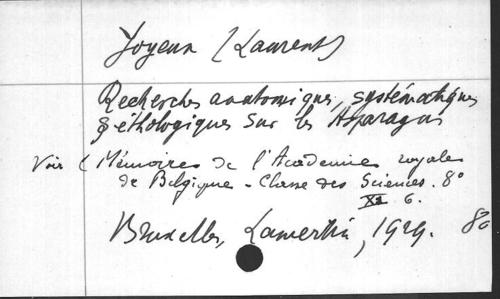 Joyeux (Laurent)
Recherches anatomiques, systématiques
& éthologiques sur les Asparagus
Voir (Mémoires de l'Académie royale
de Belgique - Classe des Sciences. 8°
XI 6.
Bruxelles, Lamertin, 1929. 8°